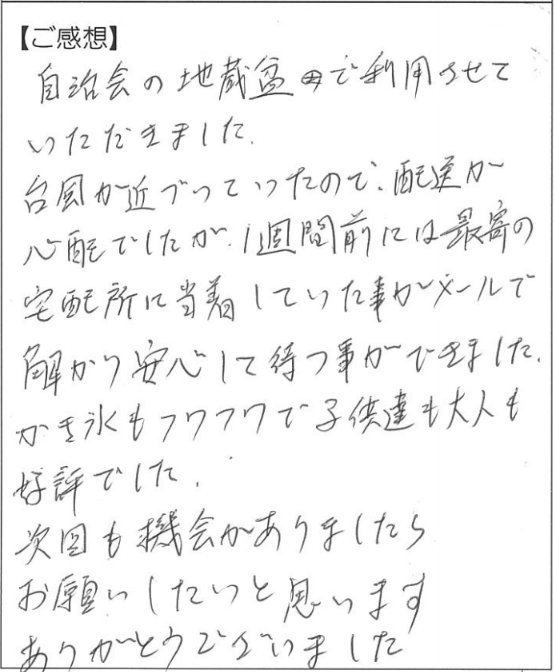 【ご感想】
自治会の地蔵盆で利用させて
いただきました.
台風が近づいていたので、配送が
心配でしたが、1週間前には最寄の
宅配所に当着していた事がメールで
解かり安心して待つ事ができました.
かき氷もフワフワで子供達も大人も
好評でした.
次回も機会がありましたら
お願いしたいと思います
ありがとうございました